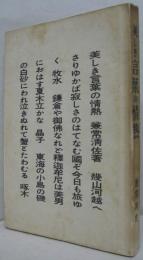 美しき言葉の情熱　兼常清佐著　幾山河越へ
さりゆかば寂しさのはてなむ國ぞ今日も旅ゆ
く　牧水　鎌倉や御佛なれど釋迦牟尼は美男
におはす夏木立かな　晶子　東海の小島の磯
の白砂にわれ泣きぬれて蟹とたわむる　啄木